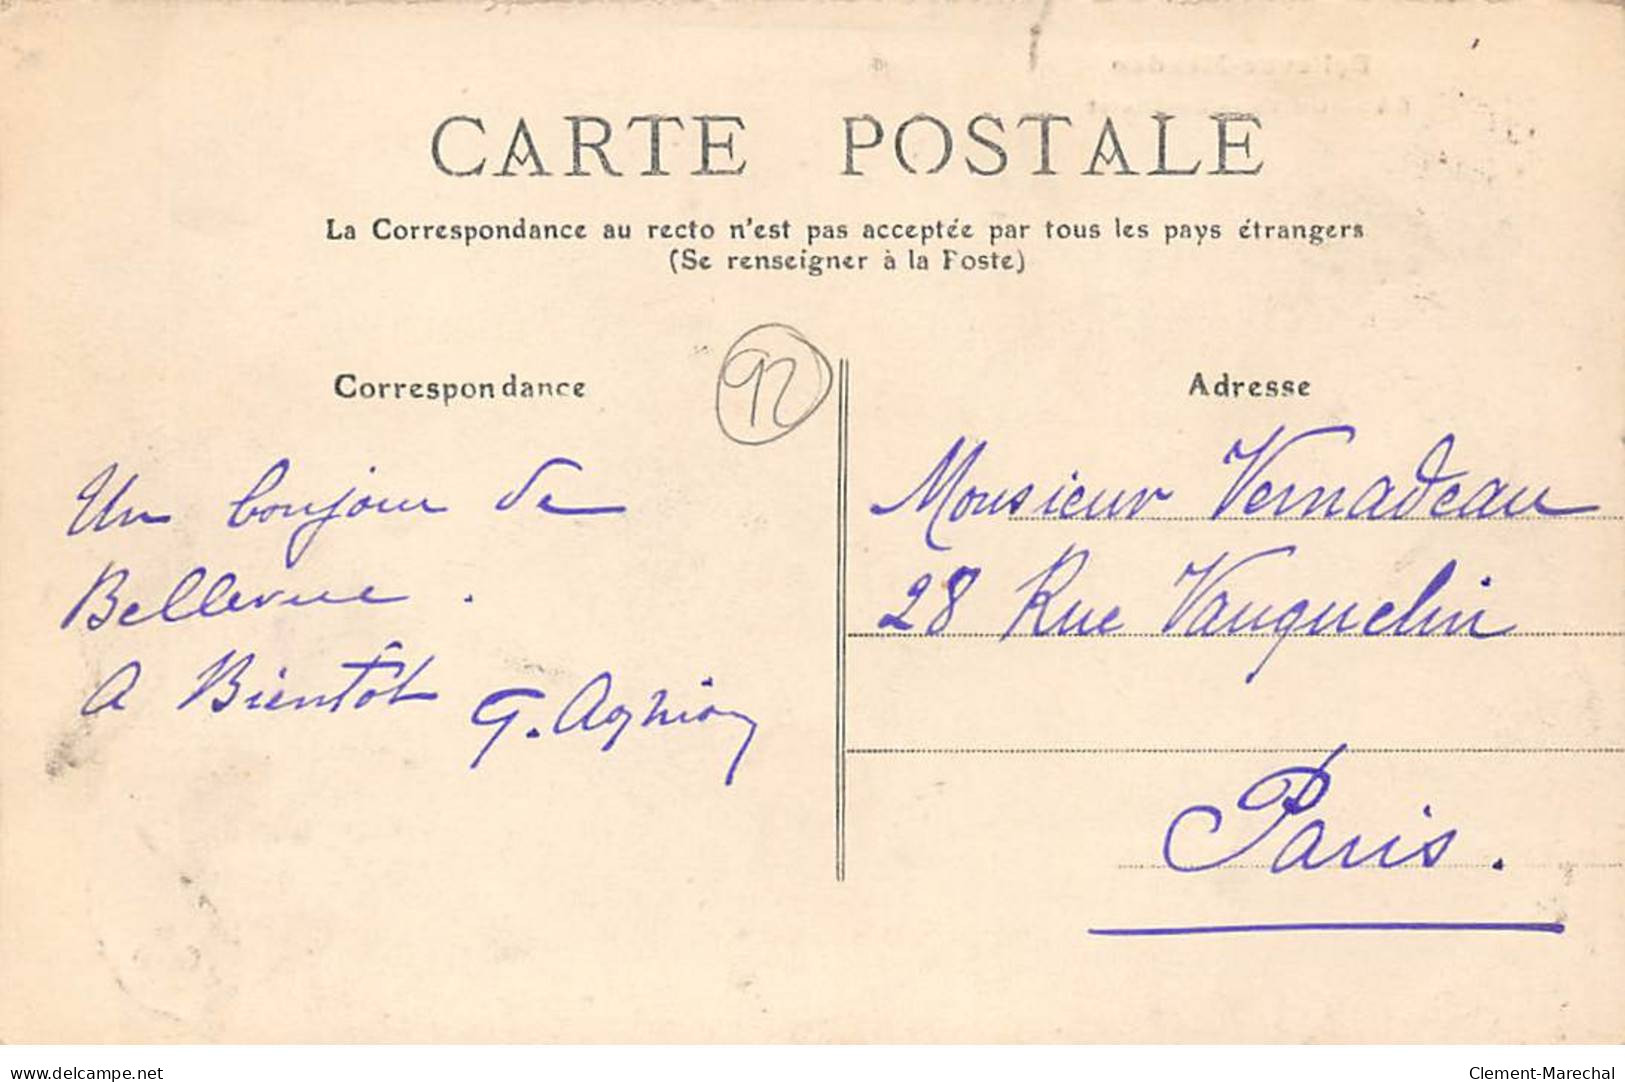 CARTE POSTALE
La Correspondance au recto n'est pas acceptée par tous les pays étrangers
(Se renseigner à la Poste)
92
Correspondance
Un bonjour de
Bellevue.
A Bientôt
G. Aghion
Adresse
Monsieur Vernadeau
28 Rue Vauquelin
Paris.
delcampe.net
Clement-Marechal